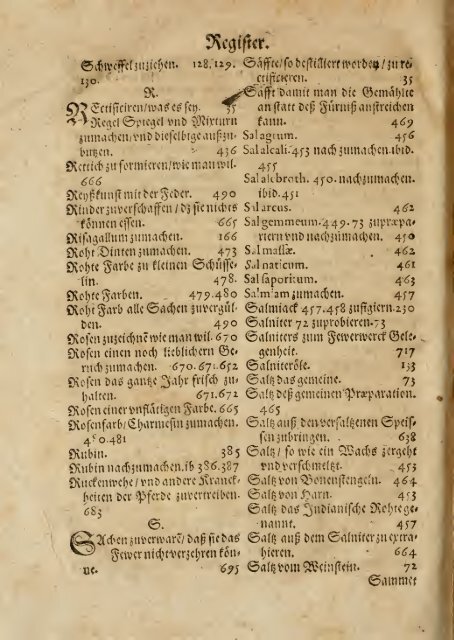 Register.
Schweffel zuziehen. 128. 129.
130.
R.
REctificiren / was es sey. 35
Regel Spiegel vnd Mixturn
zumachen / vnd dieselbige außzu-
butzen. 436
Rettich zu formieren / wie man wil.
666
Reyßkunst mit der Feder. 490
Rinder zuverschaffen / dz sie nichts
können essen. 665
Risagallum zumachen. 166
Roht Dinten zumachen. 473
Rohte Farbe zu kleinen Schüsse-
lin. 478.
Rohte Farben. 479. 480
Roht Farb alle Sachen zuvergül-
den. 490
Rosen zuzeichnē wie man wil. 670
Rosen einen noch lieblichern Ge-
ruch zumachen. 670. 671. 652
Rosen das gantze Jahr frisch zu-
halten. 671. 672
Rosen einer vnflätigen Farbe. 665
Rosenfarb / Charmesin zumachen.
480. 481
Rubin. 385
Rubin nachzumachen. ib 386. 387
Ruckenwehe / vnd andere Kranck-
heiten der Pferde zuvertreiben.
683
S.
SAchen zuverwarē / daß sie das
Fewer nicht verzehren kön-
ne. 695
Säffte / so destilliert worden / zu re-
ctificieren. 35
Safft damit man die Gemählte
an statt deß Fürniß anstreichen
kann. 469
Sal agrum. 456
Sal alcali. 453 nach zumachen. ibid.
455
Sal alebroth. 450. nachzumachen.
ibid. 451
Sal arcus. 462
Sal gemmeum. 449. 73 zupræpa-
riern vnd nachzumachen. 450
Sal massæ. 462
Sal naticum. 461
Sal saporitum. 463
Salmiam zumachen. 457
Salmiack 457. 458 zufigiern. 230
Salniter 72 zuprobieren. 73
Salniters zum Fewerwerck Gele-
genheit. 717
Salniteröle. 133
Saltz das gemeine. 73
Saltz deß gemeinen Præparation.
465
Saltz auß den versaltzenen Speis-
sen zubringen. 638
Saltz / so wie ein Wachs zergeht
vnd verschmeltzt. 453
Saltz von Bonenstengeln. 464
Saltz von Harn. 453
Saltz das Indianische Rohte ge-
nannt. 457
Saltz auß dem Salniter zu extra-
hieren. 664
Saltz vom Weinstein. 72
Sammet